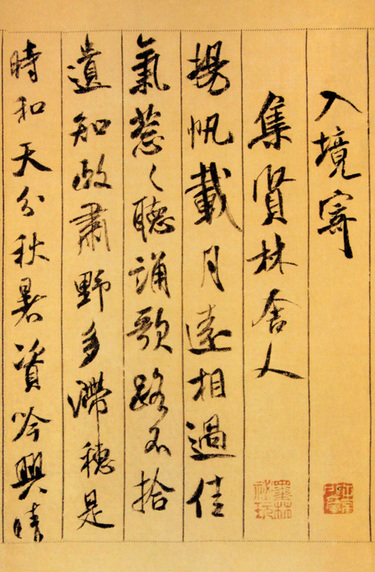 入境寄
集賢林舍人
揚帆載月遠相過佳
氣葱々聽誦歌路不拾
遺知政肅野多滯穗是
時和天分秋暑資吟興晴
墨林祕玩